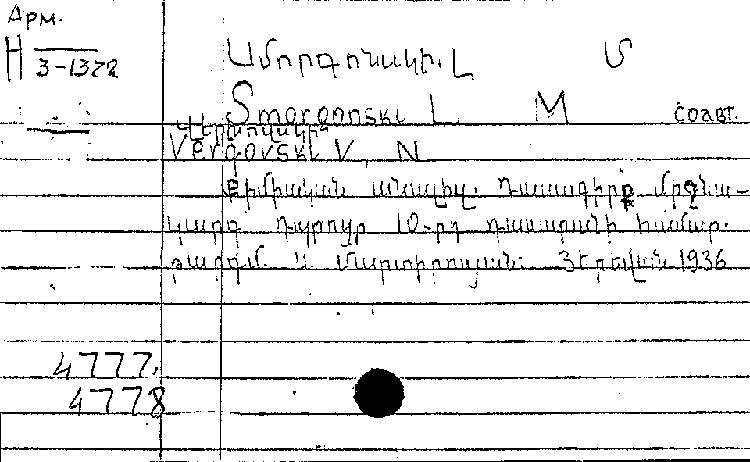 Арм.
Н 3-1372
Սմորգոնսկի. Լ Մ
Smorgonski L M соавт.
Վերգովսկի
Vergovski V. N
Քիմիական անալիզ. Դասագիրք միջնա-
կարգ դպրոցի 10-րդ դասարանի համար.
թարգմ. Մարտիրոսյան. Յերեվան 1936
4777.
4778